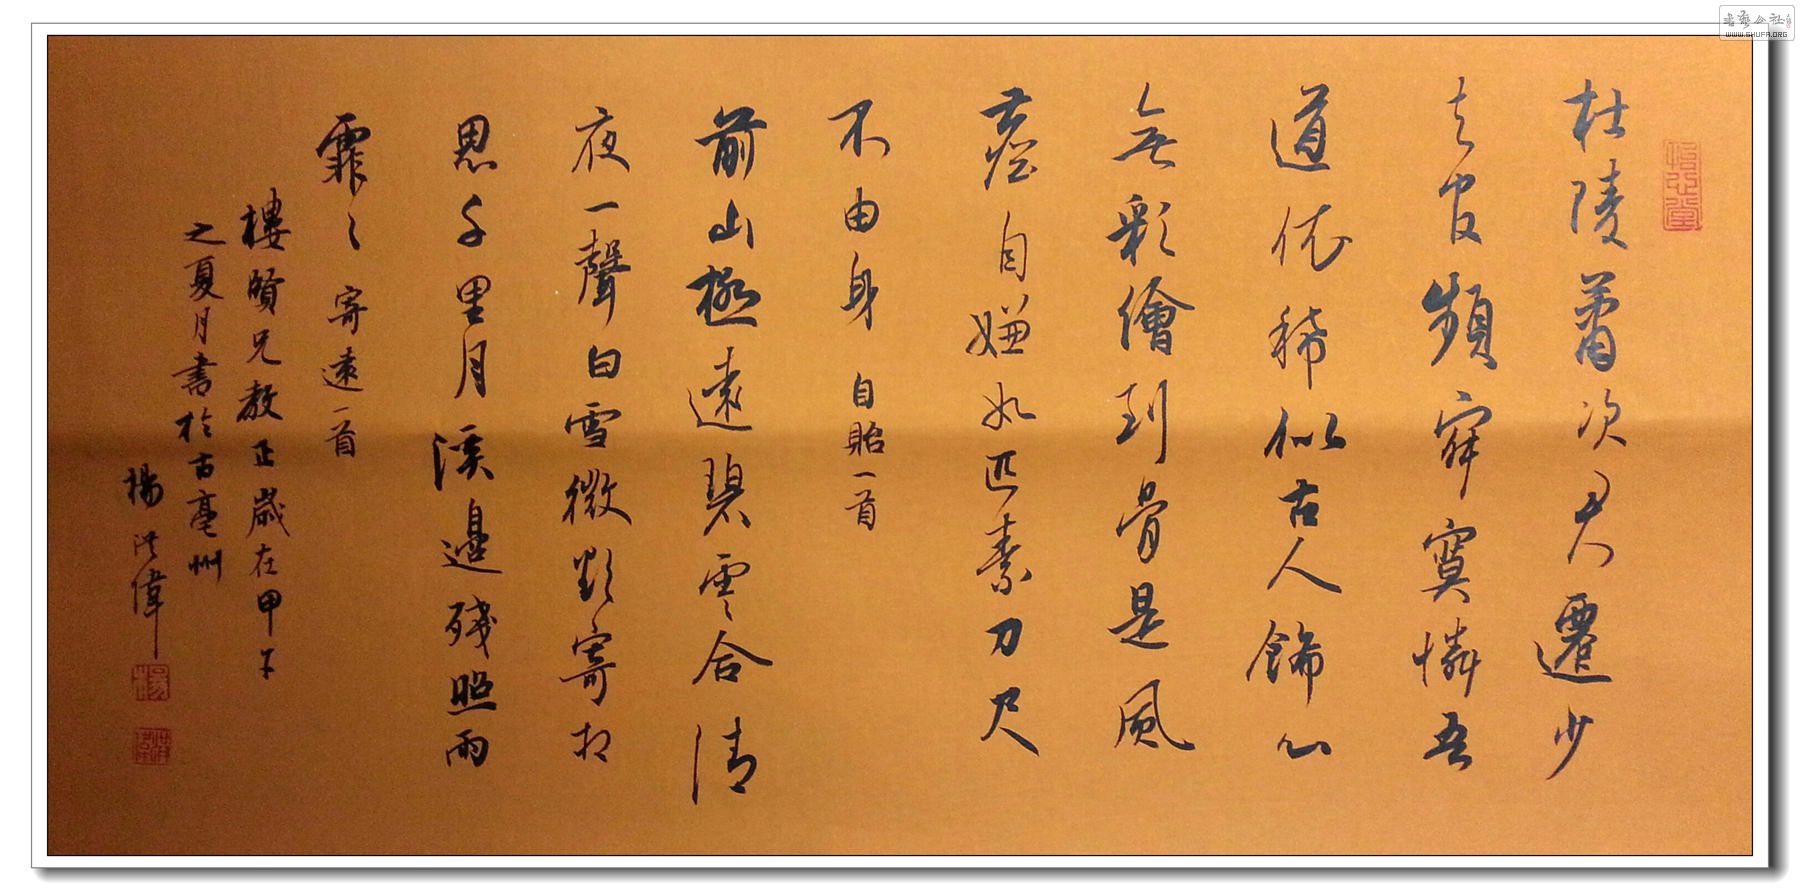 書藝公社
WWW.SHUFA.ORG
杜陵蕭次君遷少
去官頻寂寞憐吾
道依稀似古人飾心
無彩繪到骨是風
塵自嫌如匹素刀尺
不由身 自貽一首
前山極遠碧雲合清
夜一聲白雪微欲寄相
思千里月溪邊殘照雨
霏〻 寄遠一首
樓賢兄教正歲在甲午
之夏月書於古亳州
楊洪偉
楊
洪偉